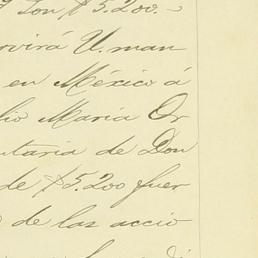 Son $5.200.-
rvirá U. man
en México á
lio María Or
ntaria de Don
de $5.200 fuer
de las accio